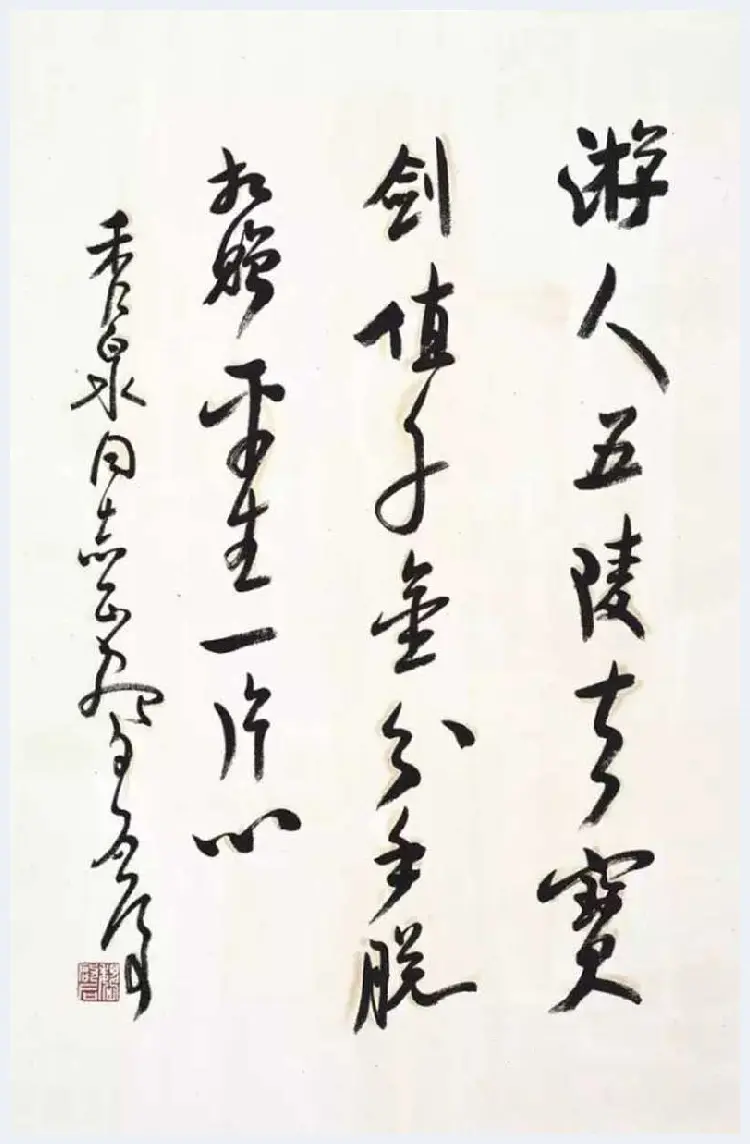 游人五陵去寶
剑值千金分手脱
相贈平生一片心
香泉同志正